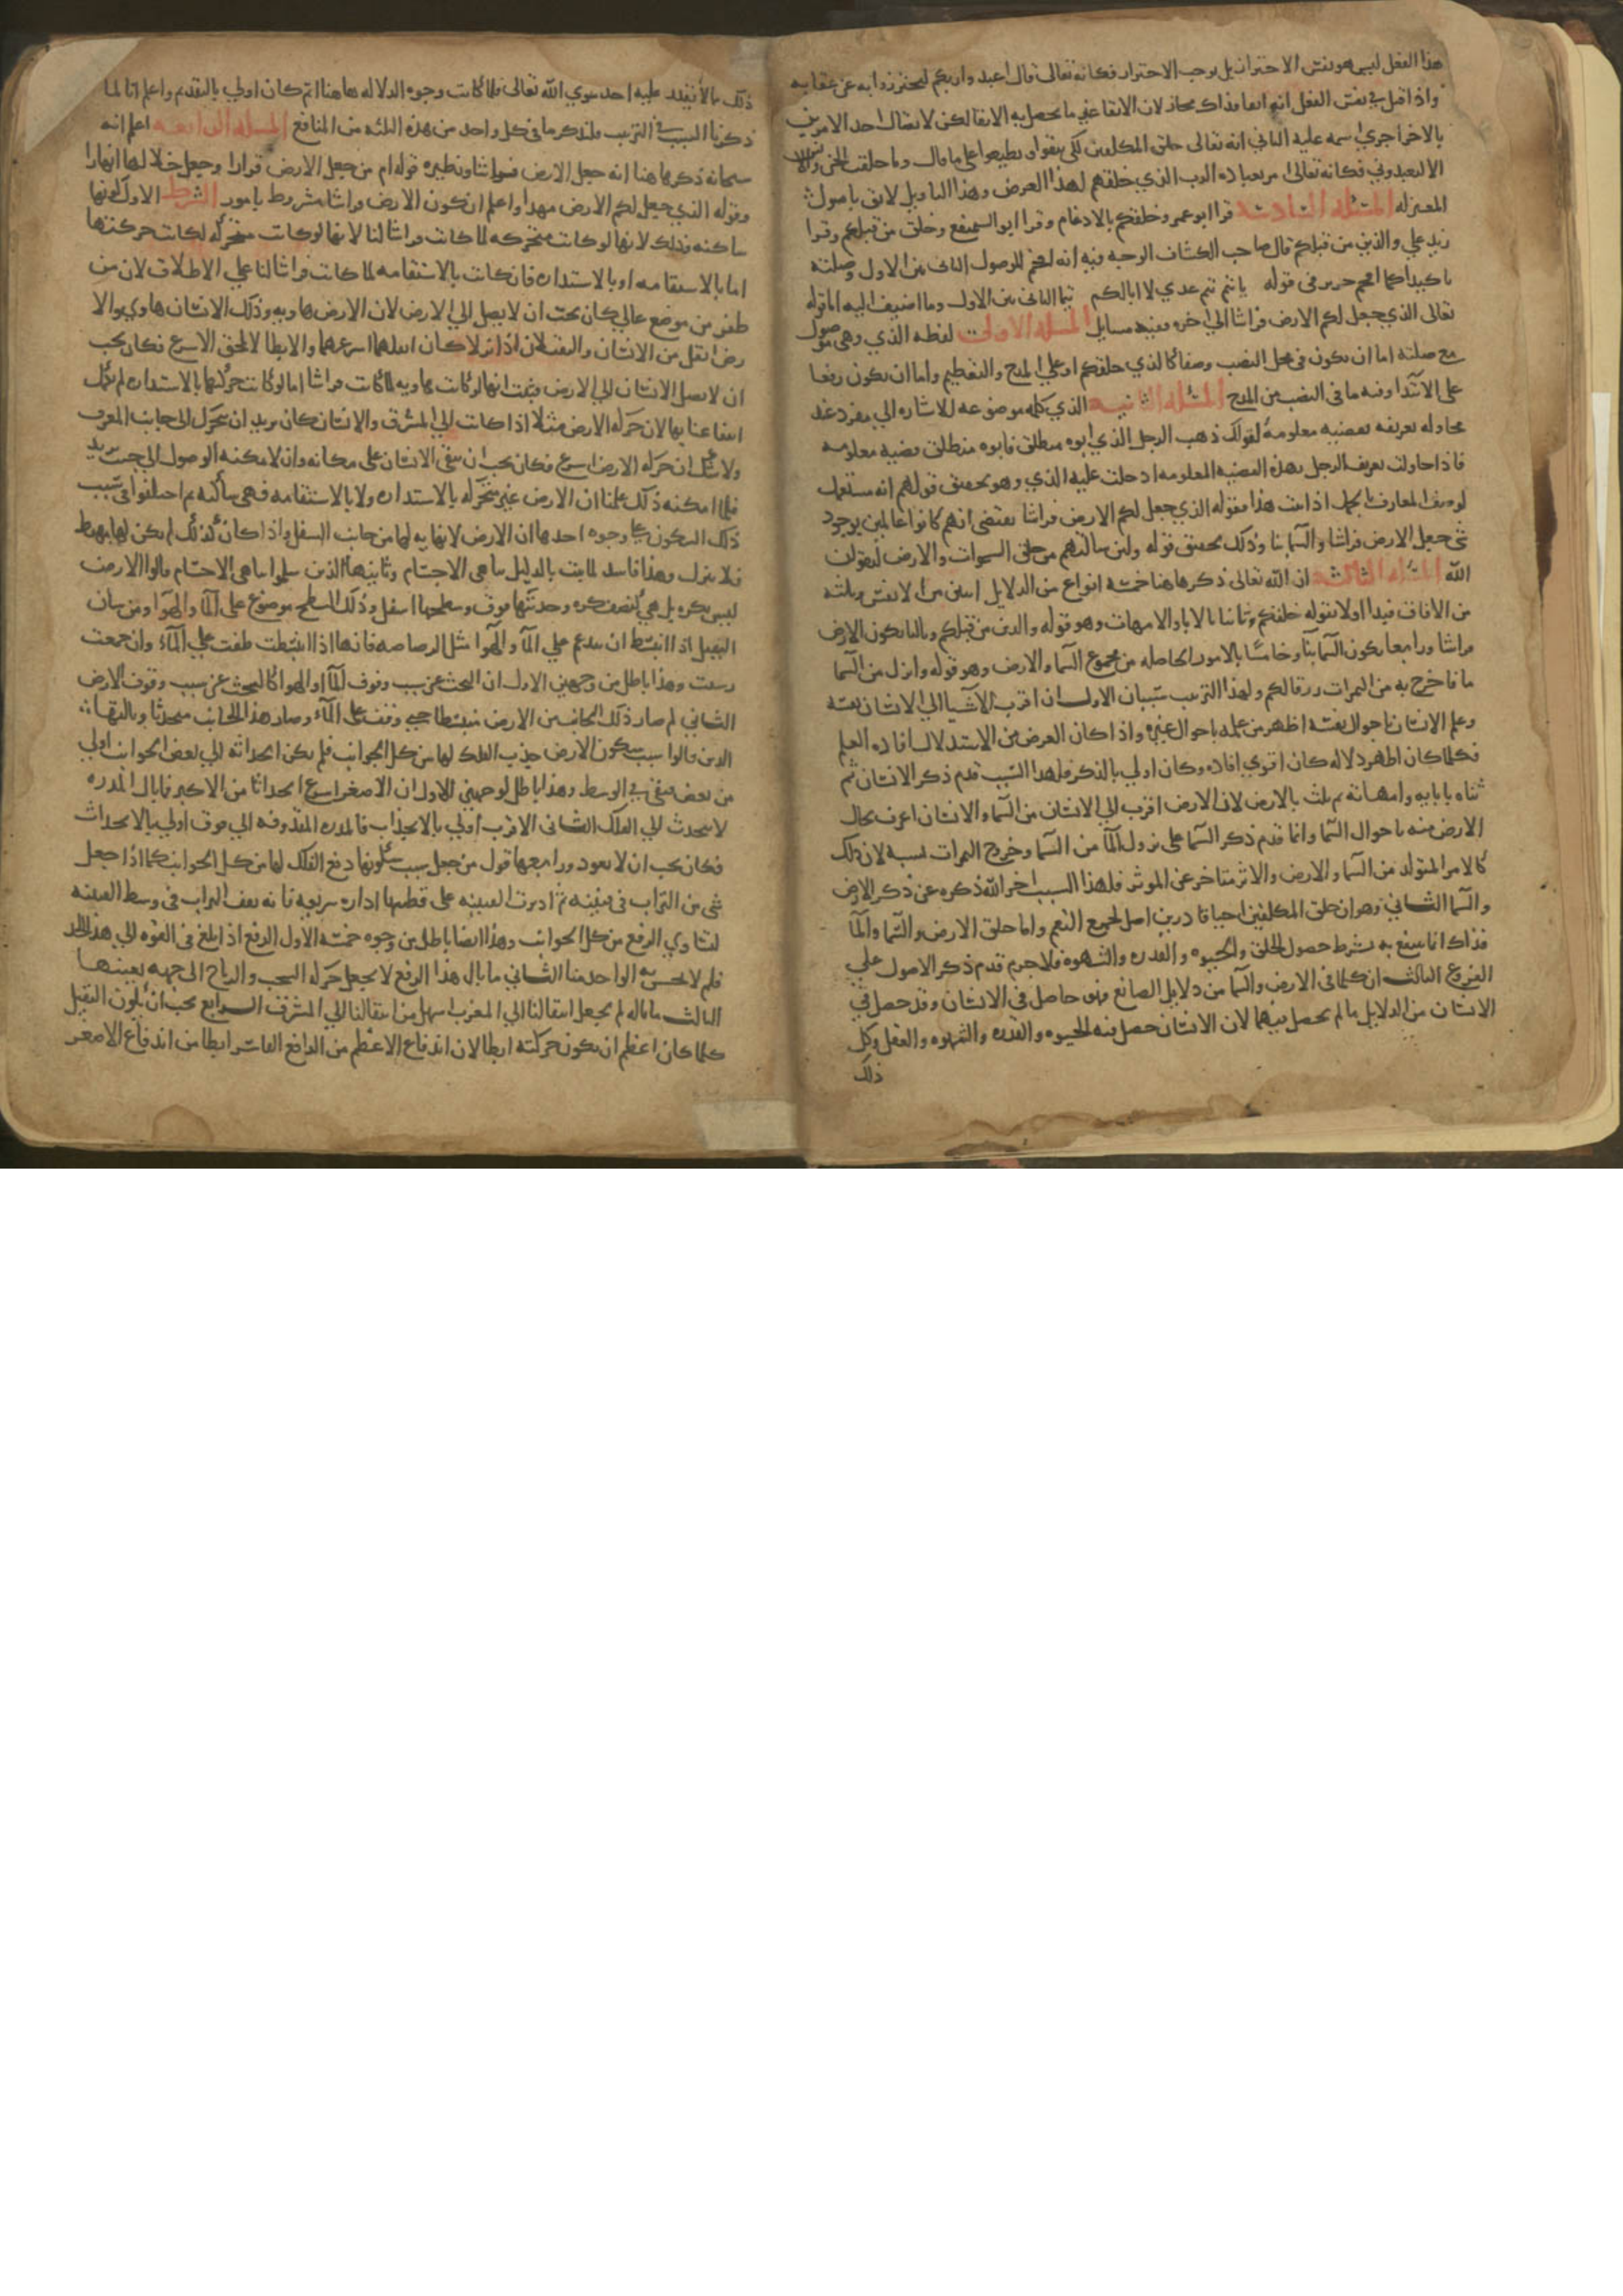 هذا الفعل ليس هو نفس الاحتراز بل يوجب الاحتراز فكانه تعالى قال اعبدوا ربكم لتحترزوا به عن عقابه
واذا قيل في نفس الفعل انه اتقا فذاك مجاز لان الاتقا غير ما يحصل به الاتقا لكن لاتصال احد الامرين
بالاخر اجري اسمه عليه الثاني انه تعالى خلق المكلفين لكي يتقوا ويطيعوا على ما قال وما خلقت الجن والانس
الا ليعبدوني فكانه تعالى امر بعبادة الرب الذي خلقهم لهذا الغرض وهذا التاويل لائق باصول
المعتزله المسئله السادسه قرا ابو عمرو خلقكم بالادغام وقرا ابو السميفع وخلق من قبلكم وقرا
زيد علي والذين من قبلكم قال صاحب الكشاف الوجه فيه انه اقحم الموصول الثاني بين الاول وصلته
تاكيدا كما اقحم جرير في قوله يا تيم تيم عدي لا ابا لكم تيما الثاني بين الاول وما اضيف اليه اما قوله
تعالى الذي جعل لكم الارض فراشا الى اخره ففيه مسايل المسئله الاولى لفظه الذي وهي موصول
مع صلته اما ان يكون في محل النصب وصفا كالذي خلقكم او على المدح والتعظيم واما ان يكون رفعا
على الابتدا وفيه ما في النصب من المدح المسئله الثانيه الذي كلمه موضوعه للاشاره الي مفرد عند
محاوله تعريفه بقضيه معلومه كقولك ذهب الرجل الذي ابوه منطلق فابوه منطلق قضيه معلومه
فاذا حاولت تعريف الرجل بهذه القضيه المعلومه ادخلت عليه الذي وهو تحقيق قولهم انه مستعمل
لوصف المعارف بالجمل اذا ثبت هذا فقوله الذي جعل لكم الارض فراشا يقتضي انهم كانوا عالمين بوجود
شي جعل الارض فراشا والسما بنا وذلك تحقيق قوله ولئن سالتهم من خلق السموات والارض ليقولن
الله المسئله الثالثه ان الله تعالى ذكر هاهنا خمسة انواع من الدلايل اثنين من الانفس وثلثه
من الافاق فبدا اولا بقوله خلقكم وثانيا بالابا والامهات وهو قوله والذين من قبلكم وثالثا بكون الارض
فراشا ورابعا بكون السما بنا وخامسا بالامور الحاصله من مجموع السما والارض وهو قوله وانزل من السما
ما فاخرج به من الثمرات رزقا لكم ولهذا الترتيب سببان الاول ان اقرب الاشيا الي الانسان نفسه
وعلم الانسان باحوال نفسه اظهر من علمه باحوال غيره واذا كان الغرض من الاستدلال افاده العلم
فكلما كان اظهر دلاله كان اقوي افاده وكان اولي بالذكر فلهذا السبب قدم ذكر الانسان ثم
ثناه بابايه وامهاته ثم ثلث بالارض لان الارض اقرب الي الانسان من السماء والانسان اعرف بحال
الارض منه باحوال السما وانما قدم ذكر السما على نزول الما من السما وخروج الثمرات بسببه لان ذلك
كالامر المتولد من السما والارض والاثر متاخر عن الموثر فلهذا السبب اخر الله ذكره عن ذكر الارض
والسما الثاني وهو ان خلق المكلفين احيا قادرين اصل لجميع النعم واما خلق الارض والسما والما
فذاك انما ينتفع به بشرط حصول الخلق والحيوه والقدره والشهوه فلا جرم قدم ذكر الاصول علي
الفروع الثالث ان كلما في الارض والسما من دلايل الصانع فهو حاصل في الانسان وقد حصل في
الانسان من الدلايل ما لم يحصل فيهما لان الانسان حصل فيه الحيوه والقدره والشهوه والعقل وكل
ذلك
ذلك مما لا يقدر عليه احد سوي الله تعالى فلما كانت وجوه الدلاله هاهنا اتم كان اولي بالتقديم واعلم انا لما
ذكرنا السبب في الترتيب فلنذكر ما في كل واحد من هذه الثلثه من المنافع المسئله الرابعه اعلم انه
سبحانه ذكر هاهنا انه جعل الارض فراشا ونظيره قوله ام من جعل الارض قرارا وجعل خلالها انهارا
وقوله الذي جعل لكم الارض مهدا واعلم ان كون الارض فراشا مشروط بامور الشرط الاول كونها
ساكنه وذلك لانها لو كانت متحركه لما كانت فراشا لنا لانها لو كانت متحركه لكانت حركتها
اما بالاستقامه او بالاستداره فان كانت بالاستقامه لما كانت فراشا لنا علي الاطلاق لان من
طفر من موضع عالي كان يجب ان لا يصل الي الارض لان الارض هاويه وذلك الانسان هاوي والا
رض اثقل من الانسان والثقيلان اذا نزلا كان اثقلهما اسرعهما والابطا لا يلحق الاسرع فكان يجب
ان لا يصل الانسان الي الارض فثبت انها لو كانت هاويه لما كانت فراشا اما لو كانت حركتها بالاستداره لم يكمل
انتفاعنا بها لان حركه الارض مثلا اذا كانت الي المشرق والانسان كان يريد ان يتحرك الي جانب المغرب
ولا شك ان حركه الارض اسرع فكان يجب ان يبقى الانسان على مكانه وان لا يمكنه الوصول الي حيث يريد
فلما امكنه ذلك علمنا ان الارض غير متحركه بالاستداره ولا بالاستقامه فهي ساكنه ثم اختلفوا في سبب
ذلك السكون علي وجوه احدها ان الارض لا نهايه لها من جانب السفل واذا كان كذلك لم يكن لها مهبط
فلا ينزل وهذا فاسد لما ثبت بالدليل تناهي الاجسام وثانيها الذين سلموا تناهي الاجسام قالوا الارض
ليس بكره بل هي كنصف كره وحدبتها فوق وسطحها اسفل وذلك السطح موضوع على الما والهوا ومن شان
الثقيل اذا انبسط ان يندعم علي الما والهوا مثل الرصاصه فانها اذا انبسطت طفت علي الماء وان جمعت
رسبت وهذا باطل من وجهين الاول ان البحث عن سبب وقوف الما والهوا كالبحث عن سبب وقوف الارض
الثاني لم صار ذلك الجانب من الارض منبسطا حتي وقف علي الماء وصار هذا الجانب متحدبا وثالثها
الذين قالوا سبب سكون الارض جذب الفلك لها من كل الجوانب فلم يكن انجذابه الي بعض الجوانب اولي
من بعض فبقي في الوسط وهذا باطل لوجهين الاول ان الاصغر اسرع انجذابا من الاكبر فما بال المدره
لا ينجذب الي الفلك الثاني الاقرب اولي بالانجذاب فالمدره المقذوفه الي فوق اولي بالانجذاب
فكان يجب ان لا يعود ورابعها قول من جعل سبب سكونها دفع الفلك لها من كل الجوانب كما اذا جعل
شي من التراب في قنينه ثم اديرت القنينه على قطبها اداره سريعه فانه يقف التراب في وسط القنينه
لتساوي الدفع من كل الجوانب وهذا ايضا باطل من وجوه خمسه الاول الدفع اذا بلغ في القوه الي هذا الحد
فلم لا يحس به الواحد منا الثاني ما بال هذا الدفع لا يجعل حركه السحب والرياح الى جهه بعينها
الثالث ما باله لم يجعل انتقالنا الي المغرب اسهل من انتقالنا الي المشرق الرابع يجب ان يكون الثقيل
كلما كان اعظم ان يكون حركته ابطا لان اندفاع الاعظم من الدافع القاسر ابطا من اندفاع الاصغر